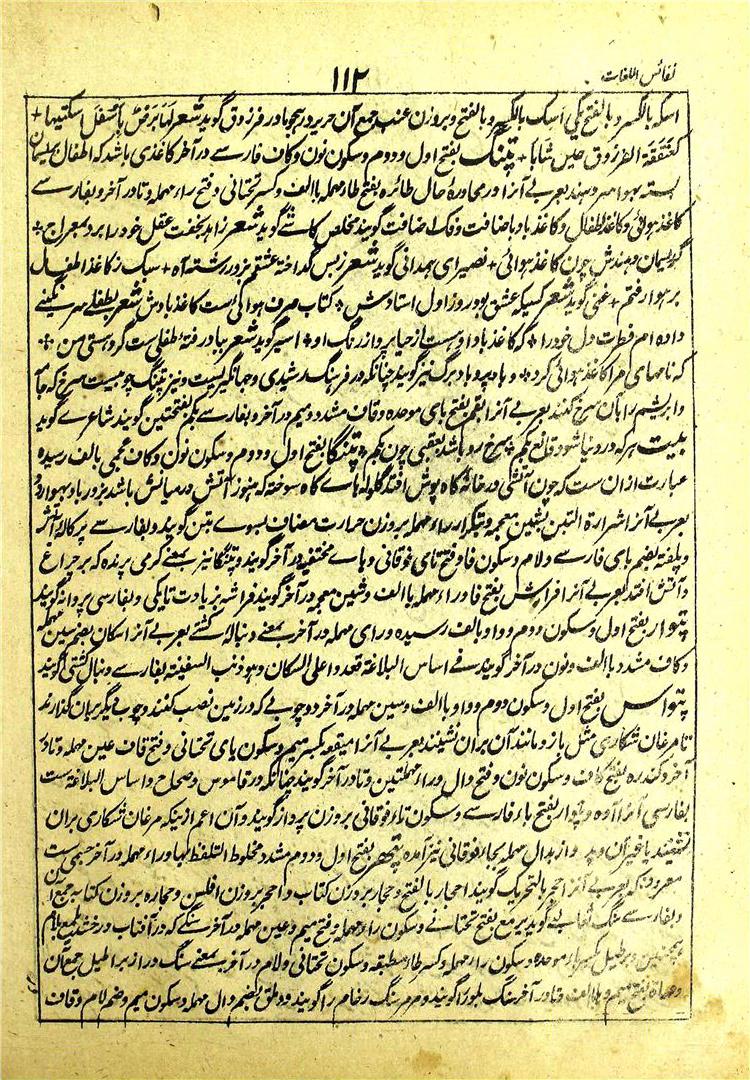 نفائس اللغات
۱۱۲
اسکہ بالکسر و بالفتح یکی اسک بالکسر و بالفتح و بروزن عنب جمع آن جریر در ہجا مادر فرزدق گوید شعر لہا برص باسفل اسکتیہا +
کعنفقة الفرزدق حین شابا + پتنگ بفتح اول و دوم و سکون نون و کاف فارسے در آخر کاغذی باشد کہ اطفال بریسمان
بستہ بہوا سر دہند بعربے آنرا در محاورۂ حال طائرہ بفتح طاء مہملہ با الف و کسر تحتانی و فتح راء مہملہ و تا در آخر و بفارسے
کاغذ ہوائی و کاغذ اطفال و کاغذ باد باضافت و فک اضافت گویند مخلص کاشے گوید شعر زاہد بخفت عقل خود را برد بمعراج +
گو ریسمان و بندش چون کاغذ ہوائی + نصیرای ہمدانی گوید شعر ز بس گداختہ عشقم بزور رشتہ آہ + سبک ز کاغذ اطفال
بر ہوا رفتم + غنی گوید شعر کسیکہ عشق بود روز اول استادش + کتاب صرف ہوائی است کاغذ بادش شعر بطفلے سر بکفے
دادہ ام فطرت دل خود را + کہ کاغذ باد او ست از حیا پرواز رنگ او + اسیر گوید شعر بباد رفتۂ طفلی ست گر و ہستی من +
کہ نامہای مرا کاغذ ہوائی کرد + و بادپر و بادبرک نیز گویند چنانکہ در فرہنگ رشیدی و جہانگیریست و نیز پتنگ چوبیست سرخ کہ جامہ
و ابریشم را بآن سرخ کنند بعربے آنرا بقم بفتح بای موحدہ و قاف مشدد و میم در آخر و بفارسے بکم بفتحتین گویند شاعرے گوید
بیت ہر کہ در دنیا شود قانع بکم + سرخ رو باشد بعقبی چون بکم + پتنگا بفتح اول و دوم و سکون نون و کاف عجمی بالف رسیدہ
عبارت از ان ست کہ چون آتشی در خانۂ کاہ پوش افتد گلولہ ہاے کاہ سوختہ کہ ہنوز آتش در میانش باشد بزور باد بہوا رود
بعربے آنرا شرارة التبن بشین معجمہ و تکرار راء مہملہ بروزن حرارت مضاف بسوے تبن گویند و بفارسے پرکالہ آتش
و پلفتہ بضم بای فارسے و لام و سکون فا و فتح تای فوقانی و ہاے مختفی در آخر گویند و پتنگا نیز بمعنے کرمی پرندہ کہ بر چراغ
و آتش افتد بعربے آنرا فراش بفتح فا و راء مہملہ با الف و شین معجمہ در آخر گویند فراشہ بزیادت تا یکی و بفارسی پروانہ گویند
پتوار بفتح اول و سکون دوم و واو بالف رسیدہ و رای مہملہ در آخر بمعنے دنبالہ کشتے بعربے آنرا سکان بضم سین مہملہ
و کاف مشدد با الف و نون در آخر گویند فے اساس البلاغة قعدوا علی السکان و ہو ذنب السفینة بفارسے دنبال کشتی گویند
پتواس بفتح اول و سکون دوم و واو با الف و سین مہملہ در آخر دو چوبے کہ در زمین نصب کنند و چوبے دیگر بران گذارند
تا مرغان شکاری مثل باز و مانند آن بران نشینند بعربے آنرا میقعہ کبسر میم و سکون یای تحتانی و فتح قاف عین مہملہ و تا در
آخر و کندرہ بفتح کاف و سکون نون و فتح دال و راء مہملتین و تا در آخر گویند چنانکہ در قاموس و صحاح و اساس البلاغة ست
بفارسی آنرا آوہ و پتوار بفتح باء فارسے و سکون تاء فوقانی بروزن پرواز گویند و آن اعم از ینکہ مرغان شکاری بران
نشینند یا غیر آن و پدواز بدال مہملہ بجای فوقانی نیز آمدہ پتھر بفتح اول و دوم مشدد مخلوط التلفظ بہا و راء مہملہ در آخر جسمی ست
معروف کہ بعربے آنرا حجر بالتحریک گویند احجار بالفتح و حجار بروزن کتاب و احجر بروزن افلس و حجارہ بروزن کتابہ جمع آن
و بفارسے سنگ یرمع بفتح تحتانے و سکون راء مہملہ و فتح میم و عین مہملہ در آخر سنگے کہ در آفتاب درخشد
و برطیل کبسر باء موحدہ و سکون راء مہملہ و کسر طاء مطبقہ و سکون تحتانی و لام در آخر بمعنے سنگ دراز براطیل جمع آن
و مہاة بفتح میم و ہا با الف و تا در آخر سنگ بلور را گویند و مرمر سنگ رخام را گویند و دملق بضم دال مہملہ و سکون میم و ضم لام و قاف